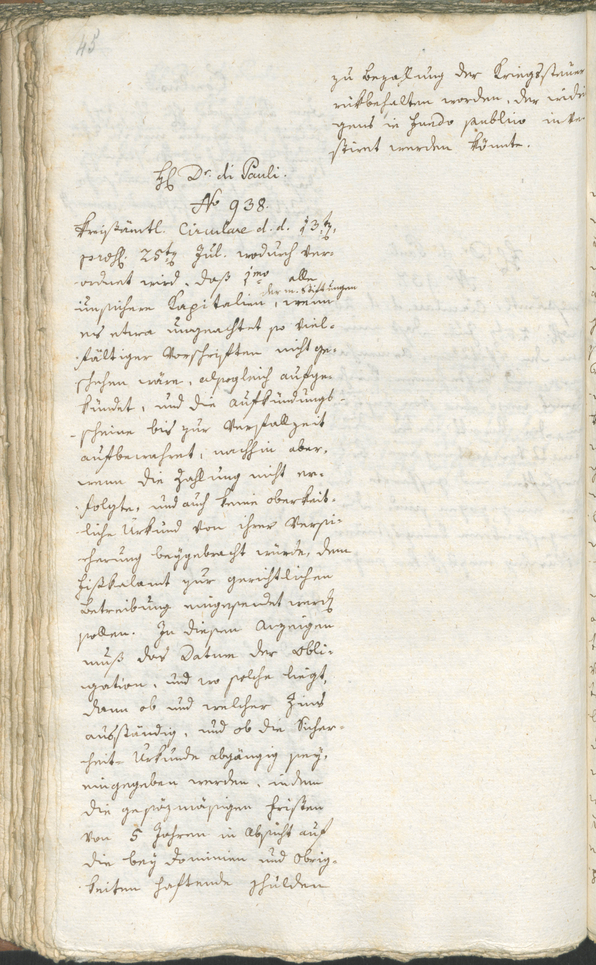 45
zu Bezalung der Kriegssteuer
rükbehalten worden, der übri-
gens in Fundo publico inve-
stiret werden könnte.
H Dr. di Pauli.
No 938.
Kreisämtl. Circulare d. d. 13t,
praes. 25t Jul. wodurch ver-
ordnet wird, daß 1mo alle
unsichere Kapitalien der m. Stiftungen, wenn
es etwa ungeachtet so viel-
fältiger Vorschriften nicht ge-
schehen wäre, alsogleich aufge-
kündet, und die Aufkündungs-
scheine bis zur Verfallzeit
aufbewahret, nachhin aber,
wenn die Zahlung nicht er-
folgte, und auch keine oberkeit-
liche Urkund von ihrer Versi-
cherung beygebracht würde, dem
Fiskalamt zur gerichtlichen
Betreibung eingesendet werden
sollen. In diesen Anzeigen
muß das Datum der Obli-
gation, und wo solche liegt,
dann ob und welcher Zins
ausständig, und ob die Sicher-
heits-Urkunde abgängig sey,
eingegeben werden, indem
die gesözmäsigen Fristen
von 5 Jahren in Absicht auf
die bey Dominien und Obrig-
keiten haftende Schulden